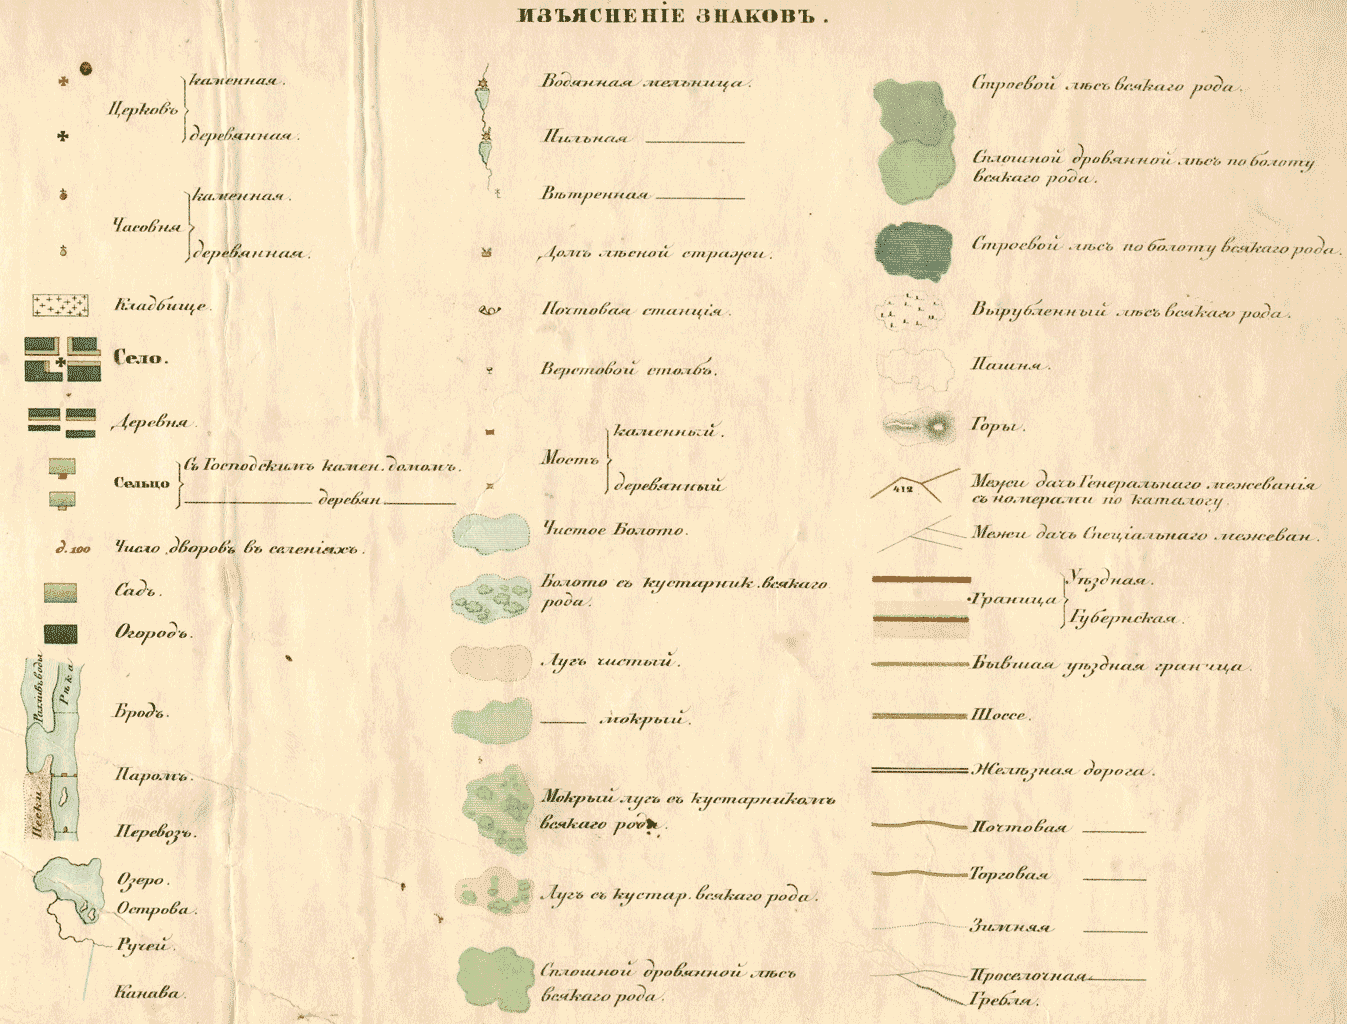 ИЗЪЯСНЕНІЕ ЗНАКОВЪ.
Церковь
каменная.
деревянная.
Часовня
каменная.
деревянная.
Кладбище.
Село.
Деревня.
Сельцо
Съ Господскимъ камен. домомъ.
деревян
д. 100
Число дворовъ въ селеніяхъ.
Садъ.
Огородъ.
Разливъ воды
Рѣка
Бродъ.
Паромъ.
Пески
Перевозъ.
Озеро.
Острова.
Ручей.
Канава.
Водянная мельница.
Пильная
Вѣтренная
Домъ лѣсной стражи.
Почтовая станція.
Верстовой столбъ.
Мостъ
каменный.
деревянный
Чистое Болото.
Болото съ кустарник. всякаго
рода.
Лугъ чистый.
мокрый.
Мокрый лугъ съ кустарникомъ
всякаго рода.
Лугъ съ кустар. всякаго рода.
Сплошной дровянной лѣсъ
всякаго рода.
Строевой лѣсъ всякаго рода.
Сплошной дровянной лѣсъ по болоту
всякаго рода.
Строевой лѣсъ по болоту всякаго рода.
Вырубленный лѣсъ всякаго рода.
Пашня.
Горы.
412
Межи дачъ Генеральнаго межеванія
съ номерами по каталогу.
Межи дачъ Спеціальнаго межеван.
Граница
Уѣздная.
Губернская.
Бывшая уѣздная граница.
Шоссе.
Желѣзная дорога.
Почтовая
Торговая
Зимняя
Проселочная
Гребля.